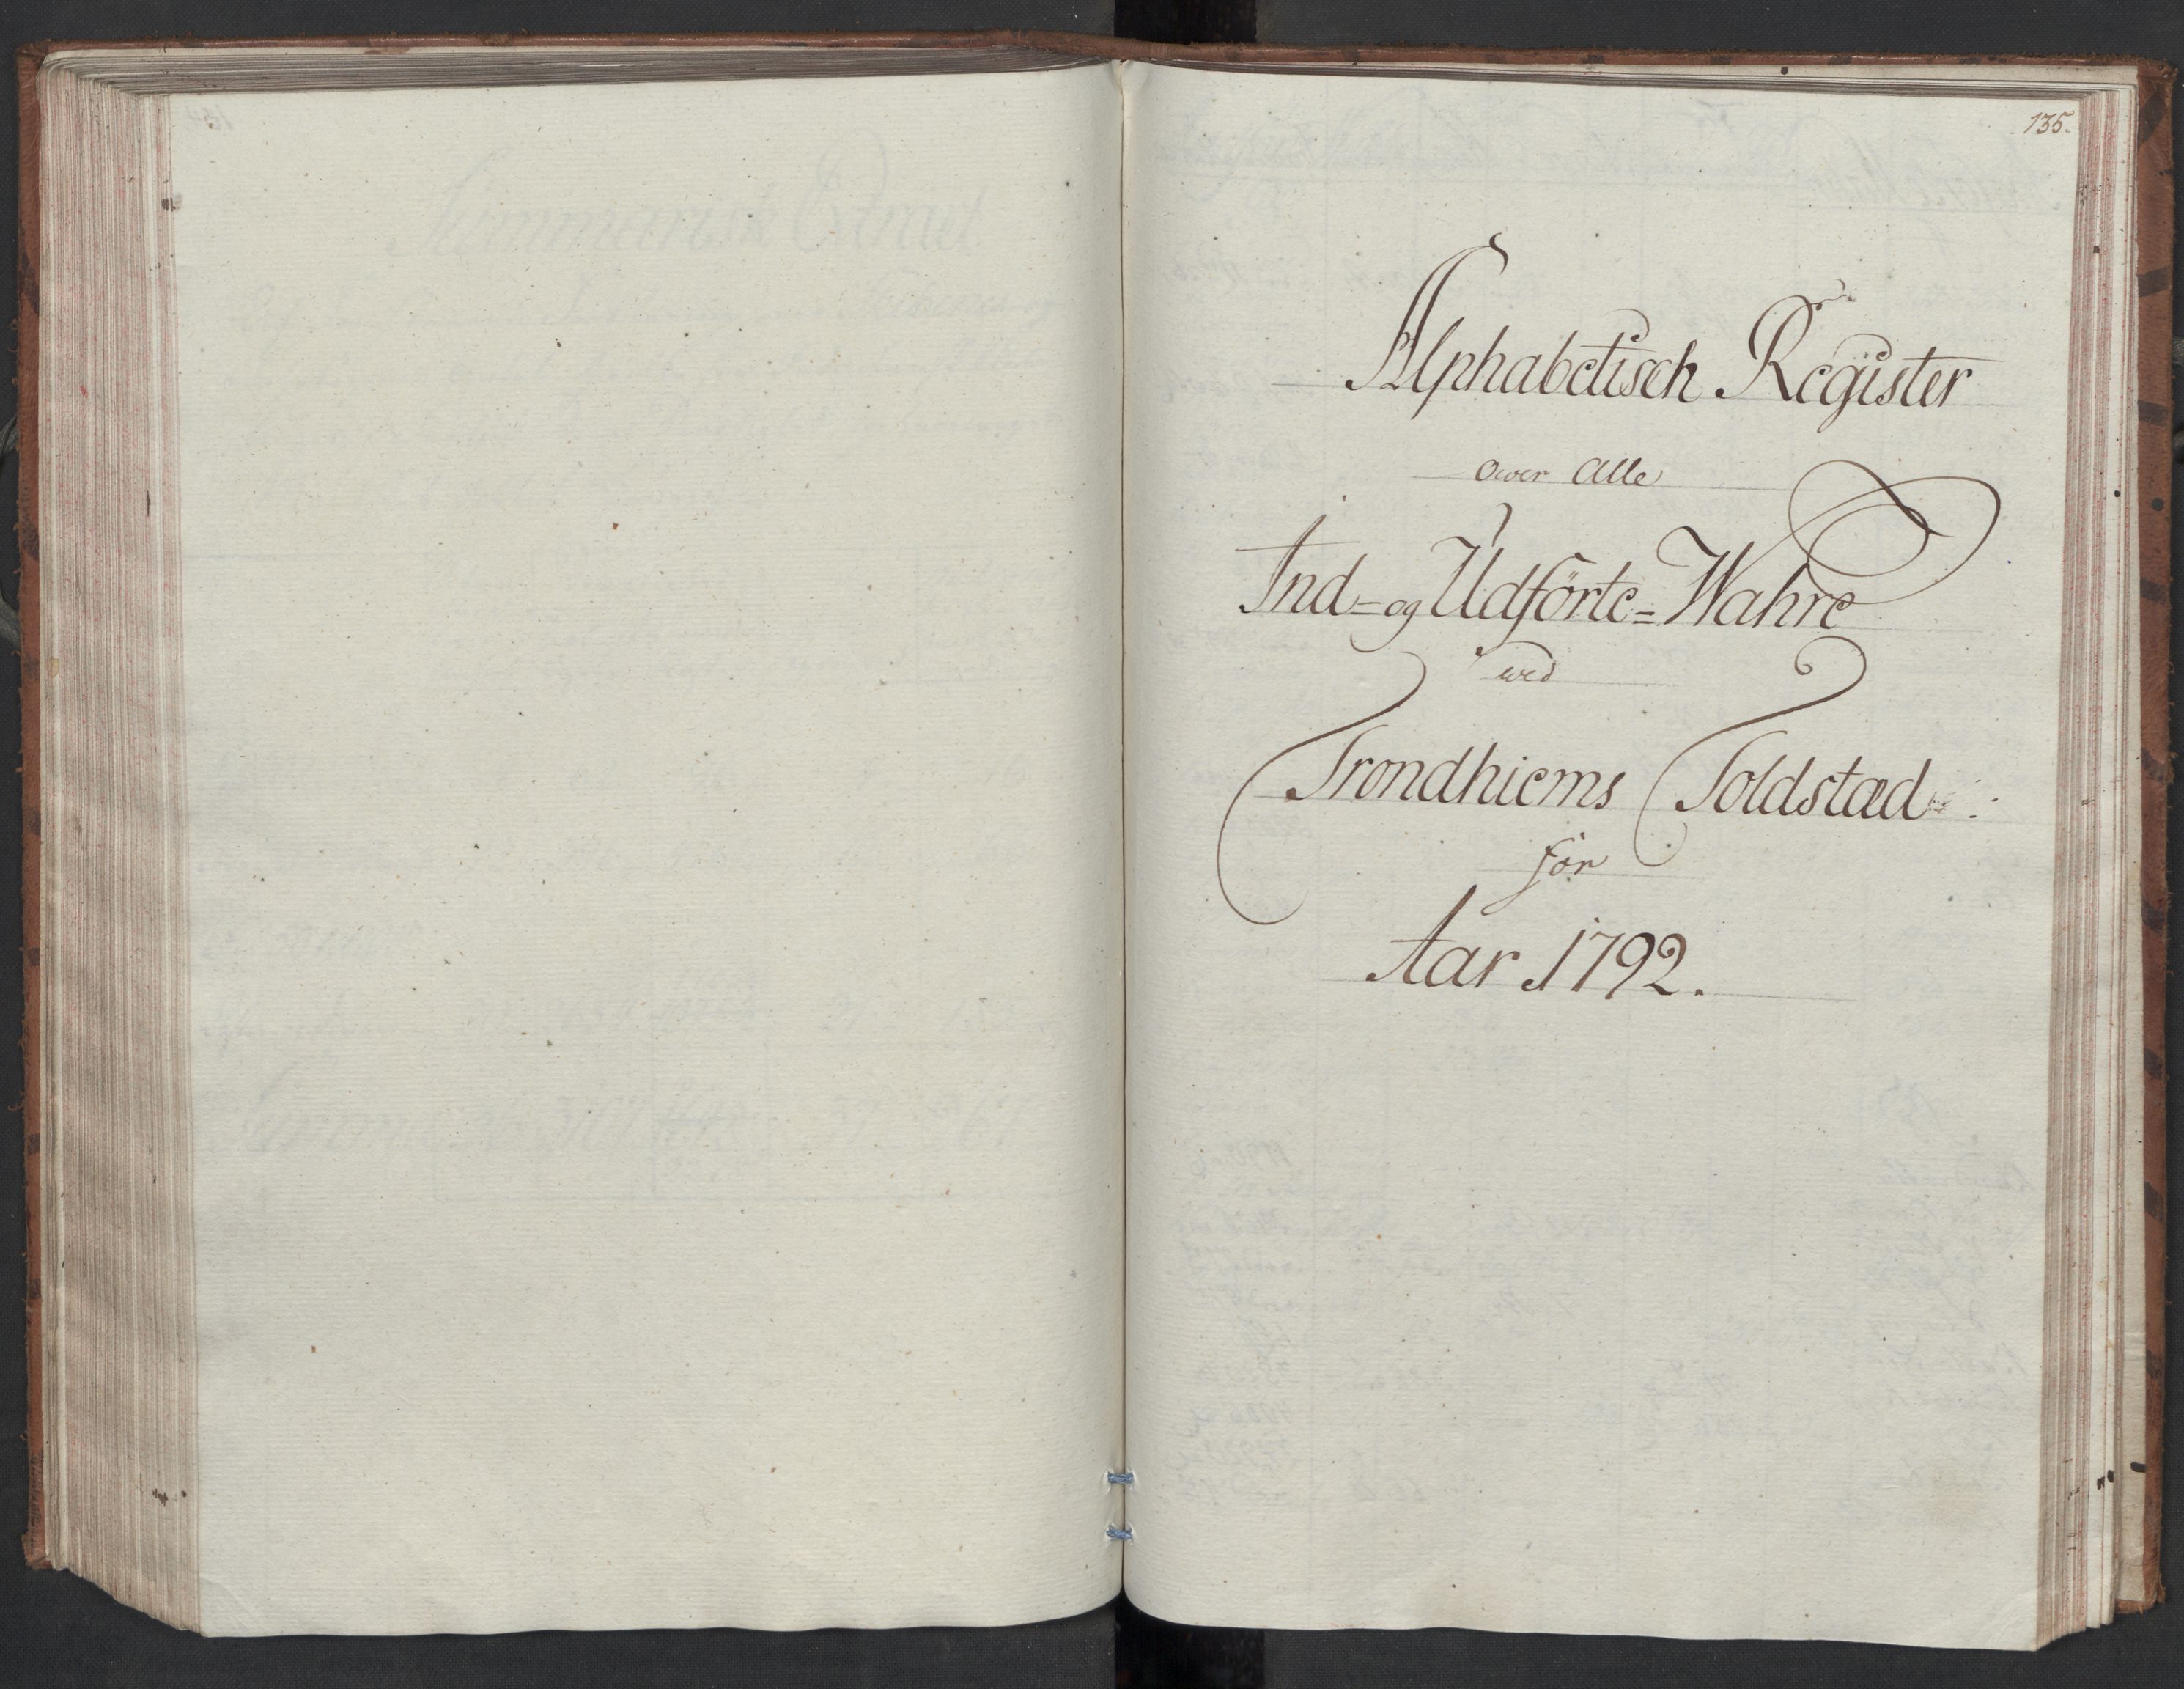 135.
Alphabetisch Register
Over Alle
Ind=og Udförte=Wahre
wed
Trondhiems Toldstæd
for
Aar 1792.